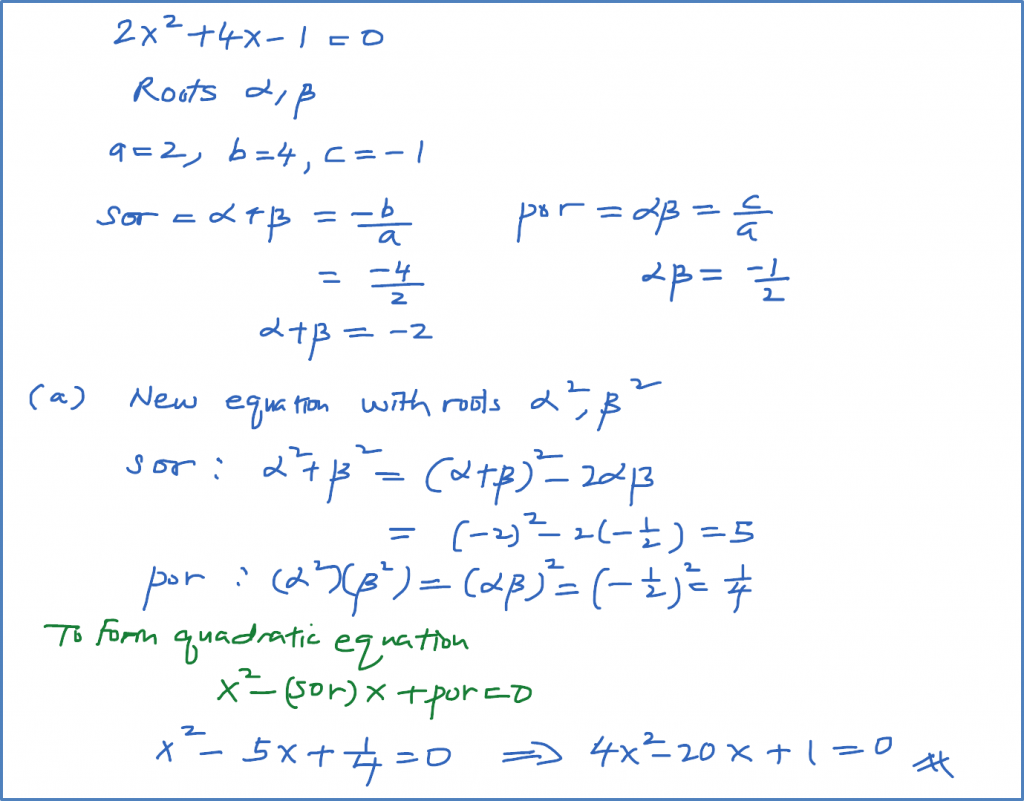 2x²+4x-1=0
Roots α, β
a=2, b=4, c=-1
sor = α+β = -b/a    por = αβ = c/a
= -4/2    αβ = -1/2
α+β = -2
(a) New equation with roots α², β²
sor : α²+β² = (α+β)²-2αβ
= (-2)²-2(-1/2) = 5
por : (α²)(β²) = (αβ)² = (-1/2)² = 1/4
To form quadratic equation
x²-(sor)x+por=0
x²-5x+1/4=0 ⟹ 4x²-20x+1=0 ⋇